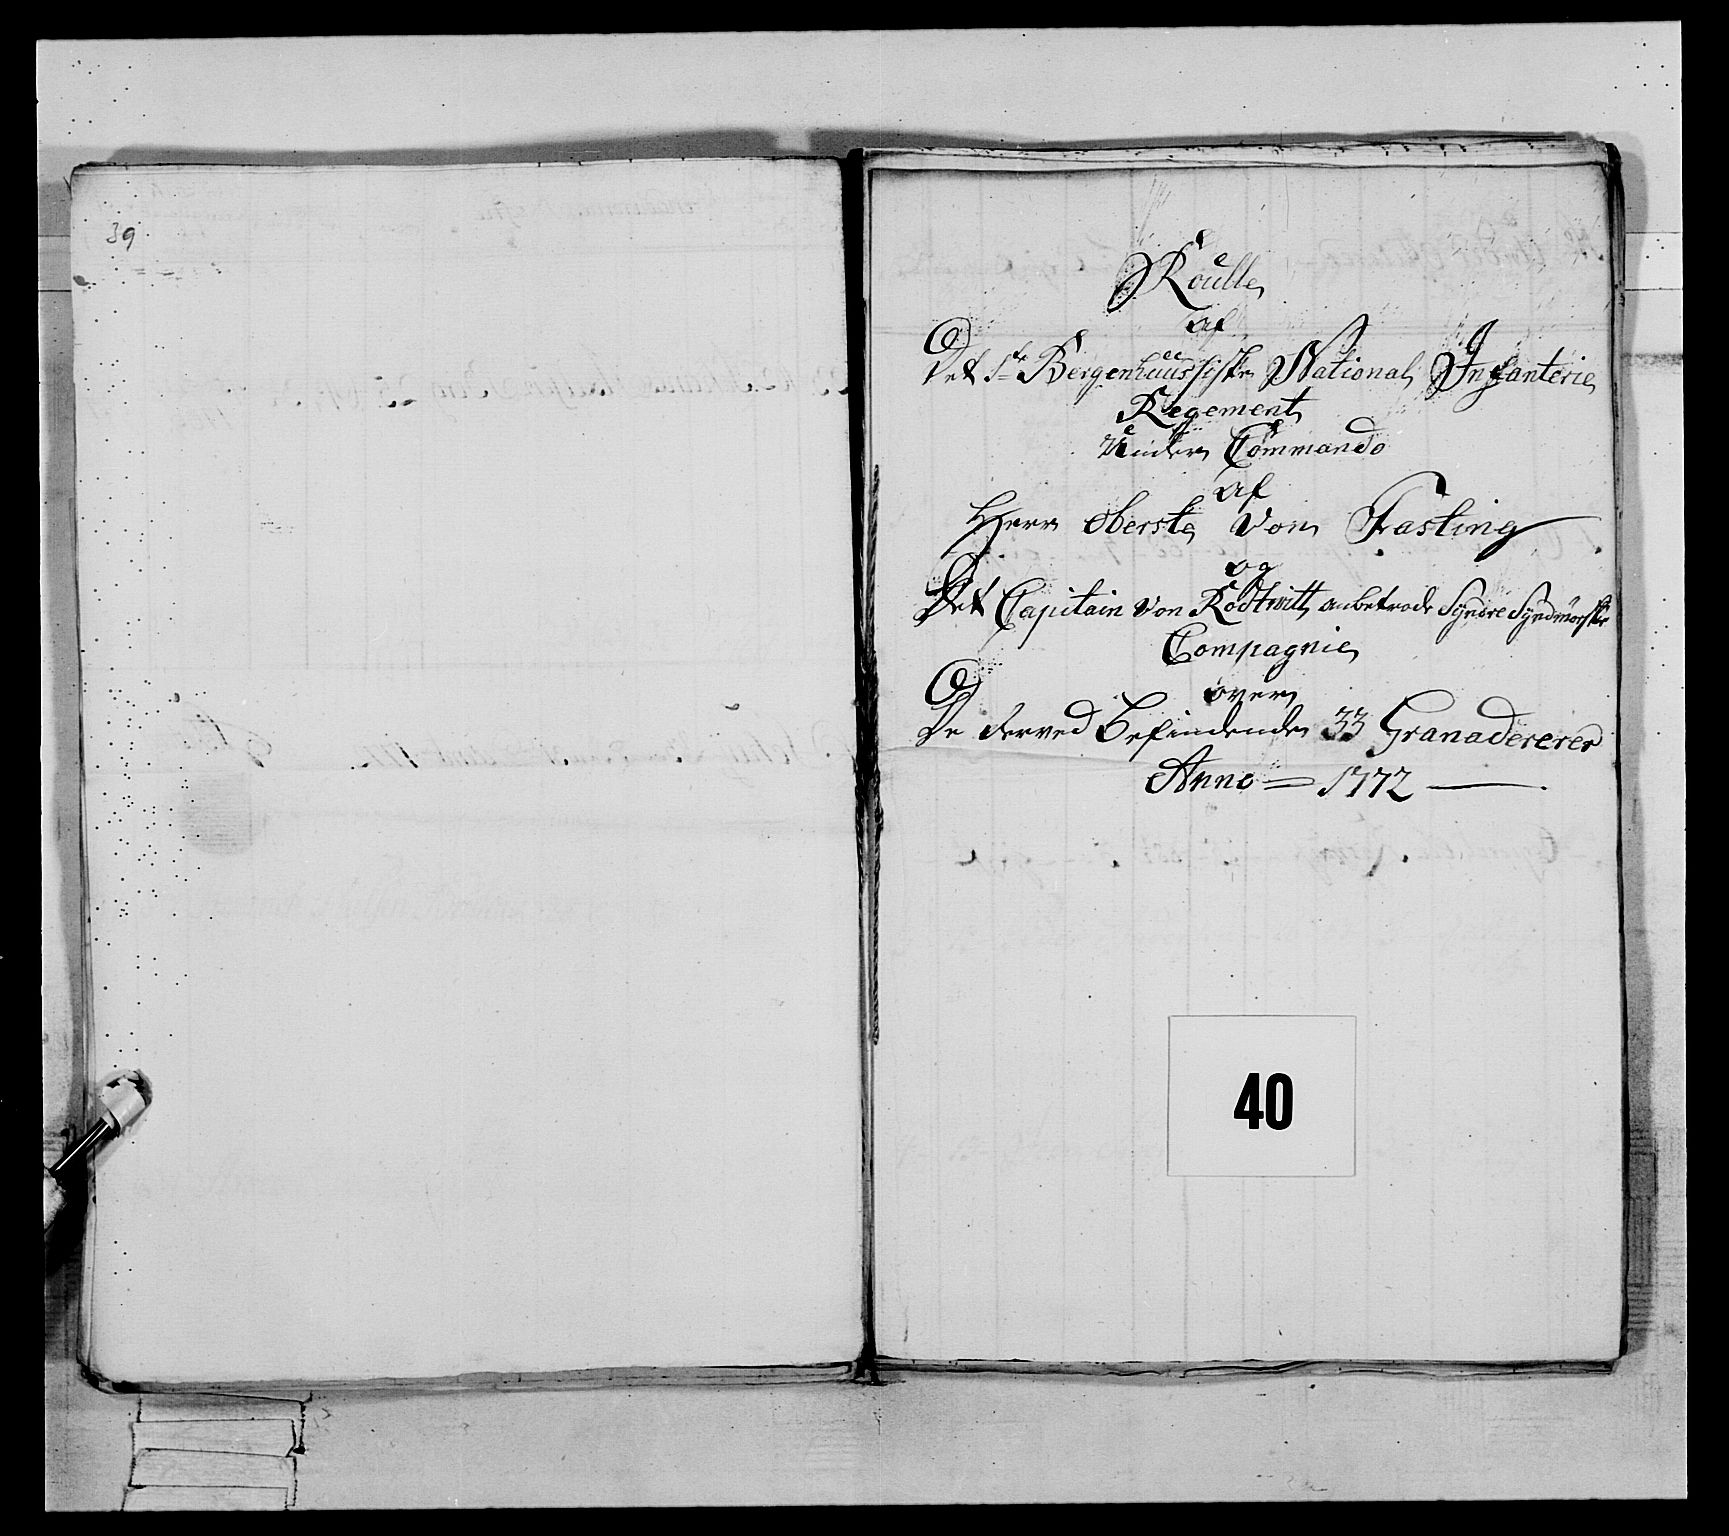 39
Roulle
af
Det 1te Bergenhuusiske National Infanterie
Regement
Under Commando
af
Herr Oberste von Fasting
og
Det Capitain von Rodtwitt anbetroede Syndre Syndmørske
Compagnie
over
De derved Befindende 33 Granaderer
Anno = 1772
40